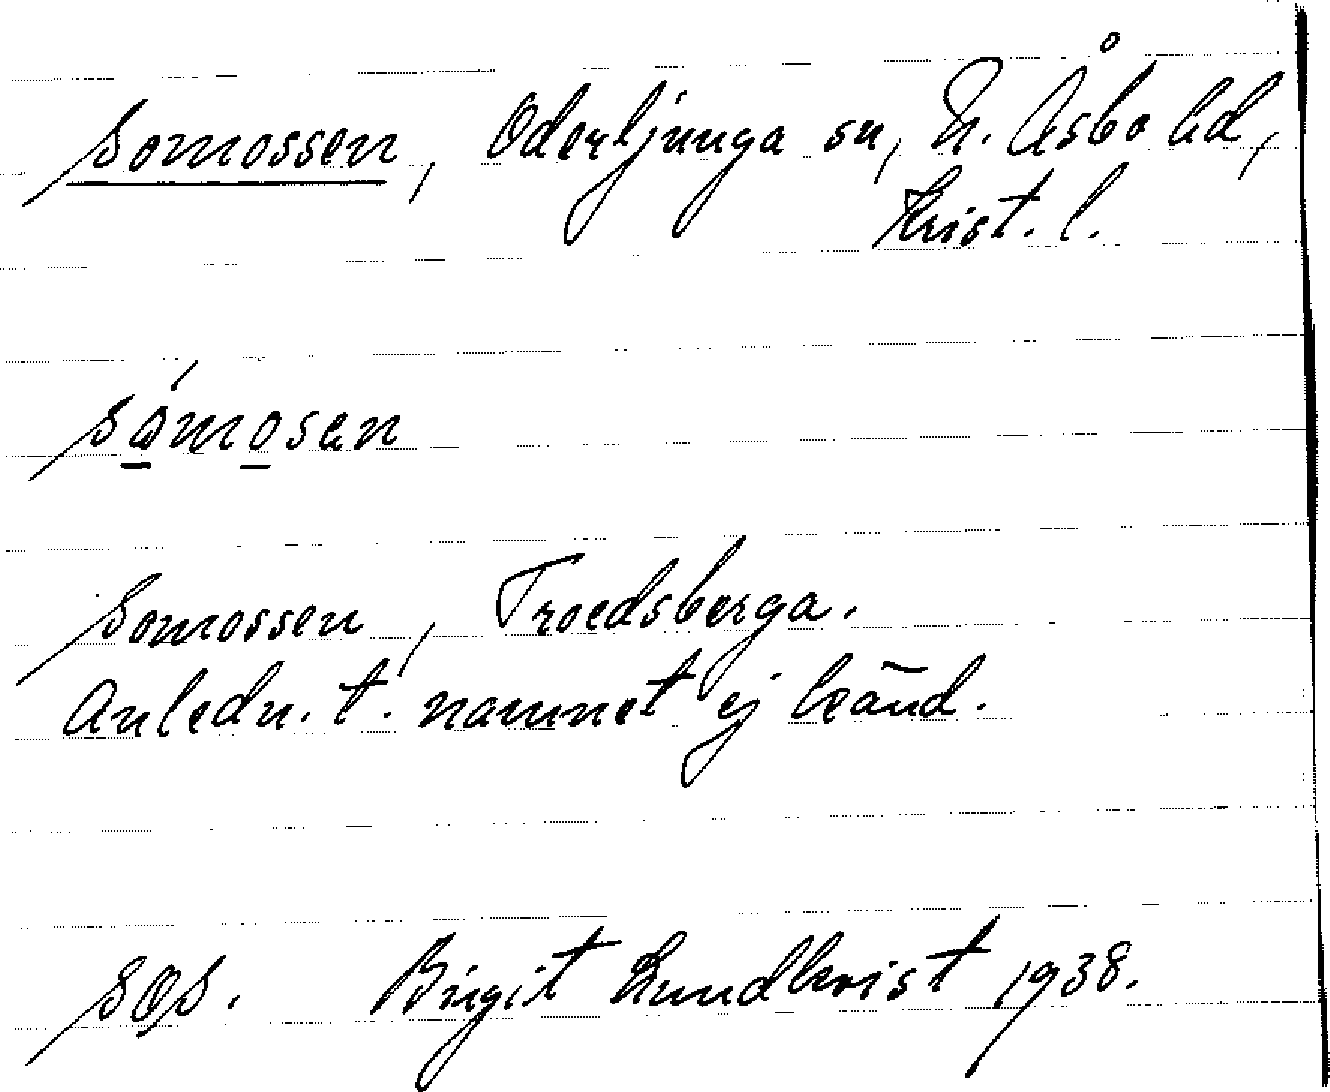 Somossen, Oderljunga sn, N. Åsbo hd,
Krist. l.
sómosen
Somossen, Troedsberga.
Anledn. t. namnet ej känd.
Birgit Lundkvist 1938.